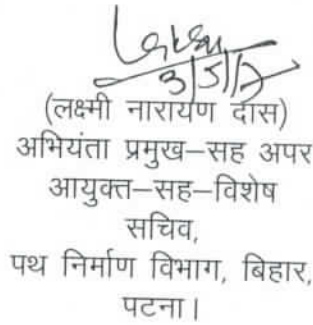 3/5/17
(लक्ष्मी नारायण दास)
अभियंता प्रमुख–सह अपर
आयुक्त–सह–विशेष
सचिव,
पथ निर्माण विभाग, बिहार,
पटना।